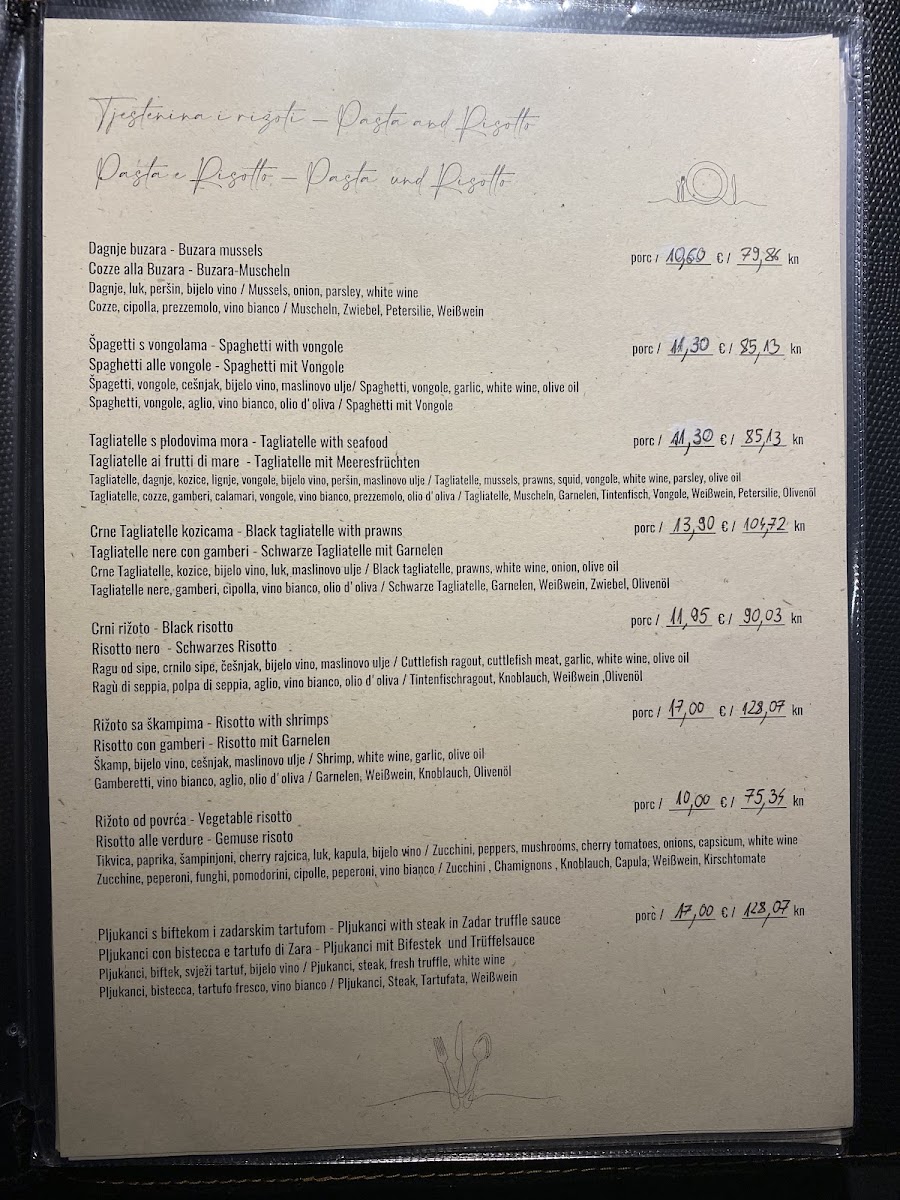 Tjestenina i rižoti – Pasta and Risotto
Pasta e Risotto – Pasta und Risotto
Dagnje buzara - Buzara mussels
porc / 10,60 € / 79,86 kn
Cozze alla Buzara - Buzara-Muscheln
Dagnje, luk, peršin, bijelo vino / Mussels, onion, parsley, white wine
Cozze, cipolla, prezzemolo, vino bianco / Muscheln, Zwiebel, Petersilie, Weißwein
Špagetti s vongolama - Spaghetti with vongole
porc / 11,30 € / 85,13 kn
Spaghetti alle vongole - Spaghetti mit Vongole
Špagetti, vongole, cešnjak, bijelo vino, maslinovo ulje/ Spaghetti, vongole, garlic, white wine, olive oil
Spaghetti, vongole, aglio, vino bianco, olio d'oliva / Spaghetti mit Vongole
Tagliatelle s plodovima mora - Tagliatelle with seafood
porc / 11,30 € / 85,13 kn
Tagliatelle ai frutti di mare - Tagliatelle mit Meeresfrüchten
Tagliatelle, dagnje, kozice, lignje, vongole, bijelo vino, peršin, maslinovo ulje / Tagliatelle, mussels, prawns, squid, vongole, white wine, parsley, olive oil
Tagliatelle, cozze, gamberi, calamari, vongole, vino bianco, prezzemolo, olio d'oliva / Tagliatelle, Muscheln, Garnelen, Tintenfisch, Vongole, Weißwein, Petersilie, Olivenöl
Crne Tagliatelle kozicama - Black tagliatelle with prawns
porc / 13,90 € / 104,72 kn
Tagliatelle nere con gamberi - Schwarze Tagliatelle mit Garnelen
Crne Tagliatelle, kozice, bijelo vino, luk, maslinovo ulje / Black tagliatelle, prawns, white wine, onion, olive oil
Tagliatelle nere, gamberi, cipolla, vino bianco, olio d'oliva / Schwarze Tagliatelle, Garnelen, Weißwein, Zwiebel, Olivenöl
Crni rižoto - Black risotto
porc / 11,95 € / 90,03 kn
Risotto nero - Schwarzes Risotto
Ragu od sipe, crnilo sipe, češnjak, bijelo vino, maslinovo ulje / Cuttlefish ragout, cuttlefish meat, garlic, white wine, olive oil
Ragù di seppia, polpa di seppia, aglio, vino bianco, olio d'oliva / Tintenfischragout, Knoblauch, Weißwein ,Olivenöl
Rižoto sa škampima - Risotto with shrimps
porc / 17,00 € / 128,07 kn
Risotto con gamberi - Risotto mit Garnelen
Škamp, bijelo vino, cešnjak, maslinovo ulje / Shrimp, white wine, garlic, olive oil
Gamberetti, vino bianco, aglio, olio d'oliva / Garnelen, Weißwein, Knoblauch, Olivenöl
Rižoto od povrća - Vegetable risotto
porc / 10,00 € / 75,34 kn
Risotto alle verdure - Gemuse risoto
Tikvica, paprika, šampinjoni, cherry rajcica, luk, kapula, bijelo vino / Zucchini, peppers, mushrooms, cherry tomatoes, onions, capsicum, white wine
Zucchine, peperoni, funghi, pomodorini, cipolle, peperoni, vino bianco / Zucchini , Chamignons , Knoblauch, Capula, Weißwein, Kirschtomate
Pljukanci s biftekom i zadarskim tartufom - Pljukanci with steak in Zadar truffle sauce
porc / 17,00 € / 128,07 kn
Pljukanci con bistecca e tartufo di Zara - Pljukanci mit Bifestek und Trüffelsauce
Pljukanci, biftek, svježi tartuf, bijelo vino / Pjukanci, steak, fresh truffle, white wine
Pljukanci, bistecca, tartufo fresco, vino bianco / Pljukanci, Steak, Tartufata, Weißwein